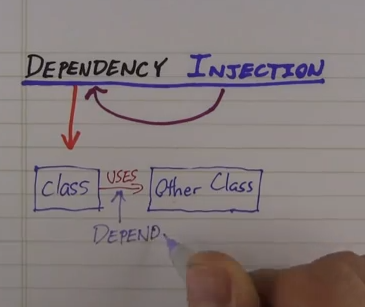 DEPENDENCY INJECTION
USES
Class Other Class
DEPEND